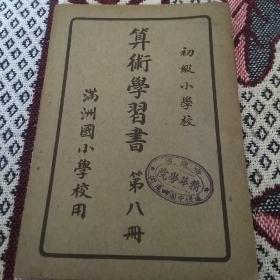 初級小學校
算術學習書 第八冊
滿洲國小學校用
精華學院